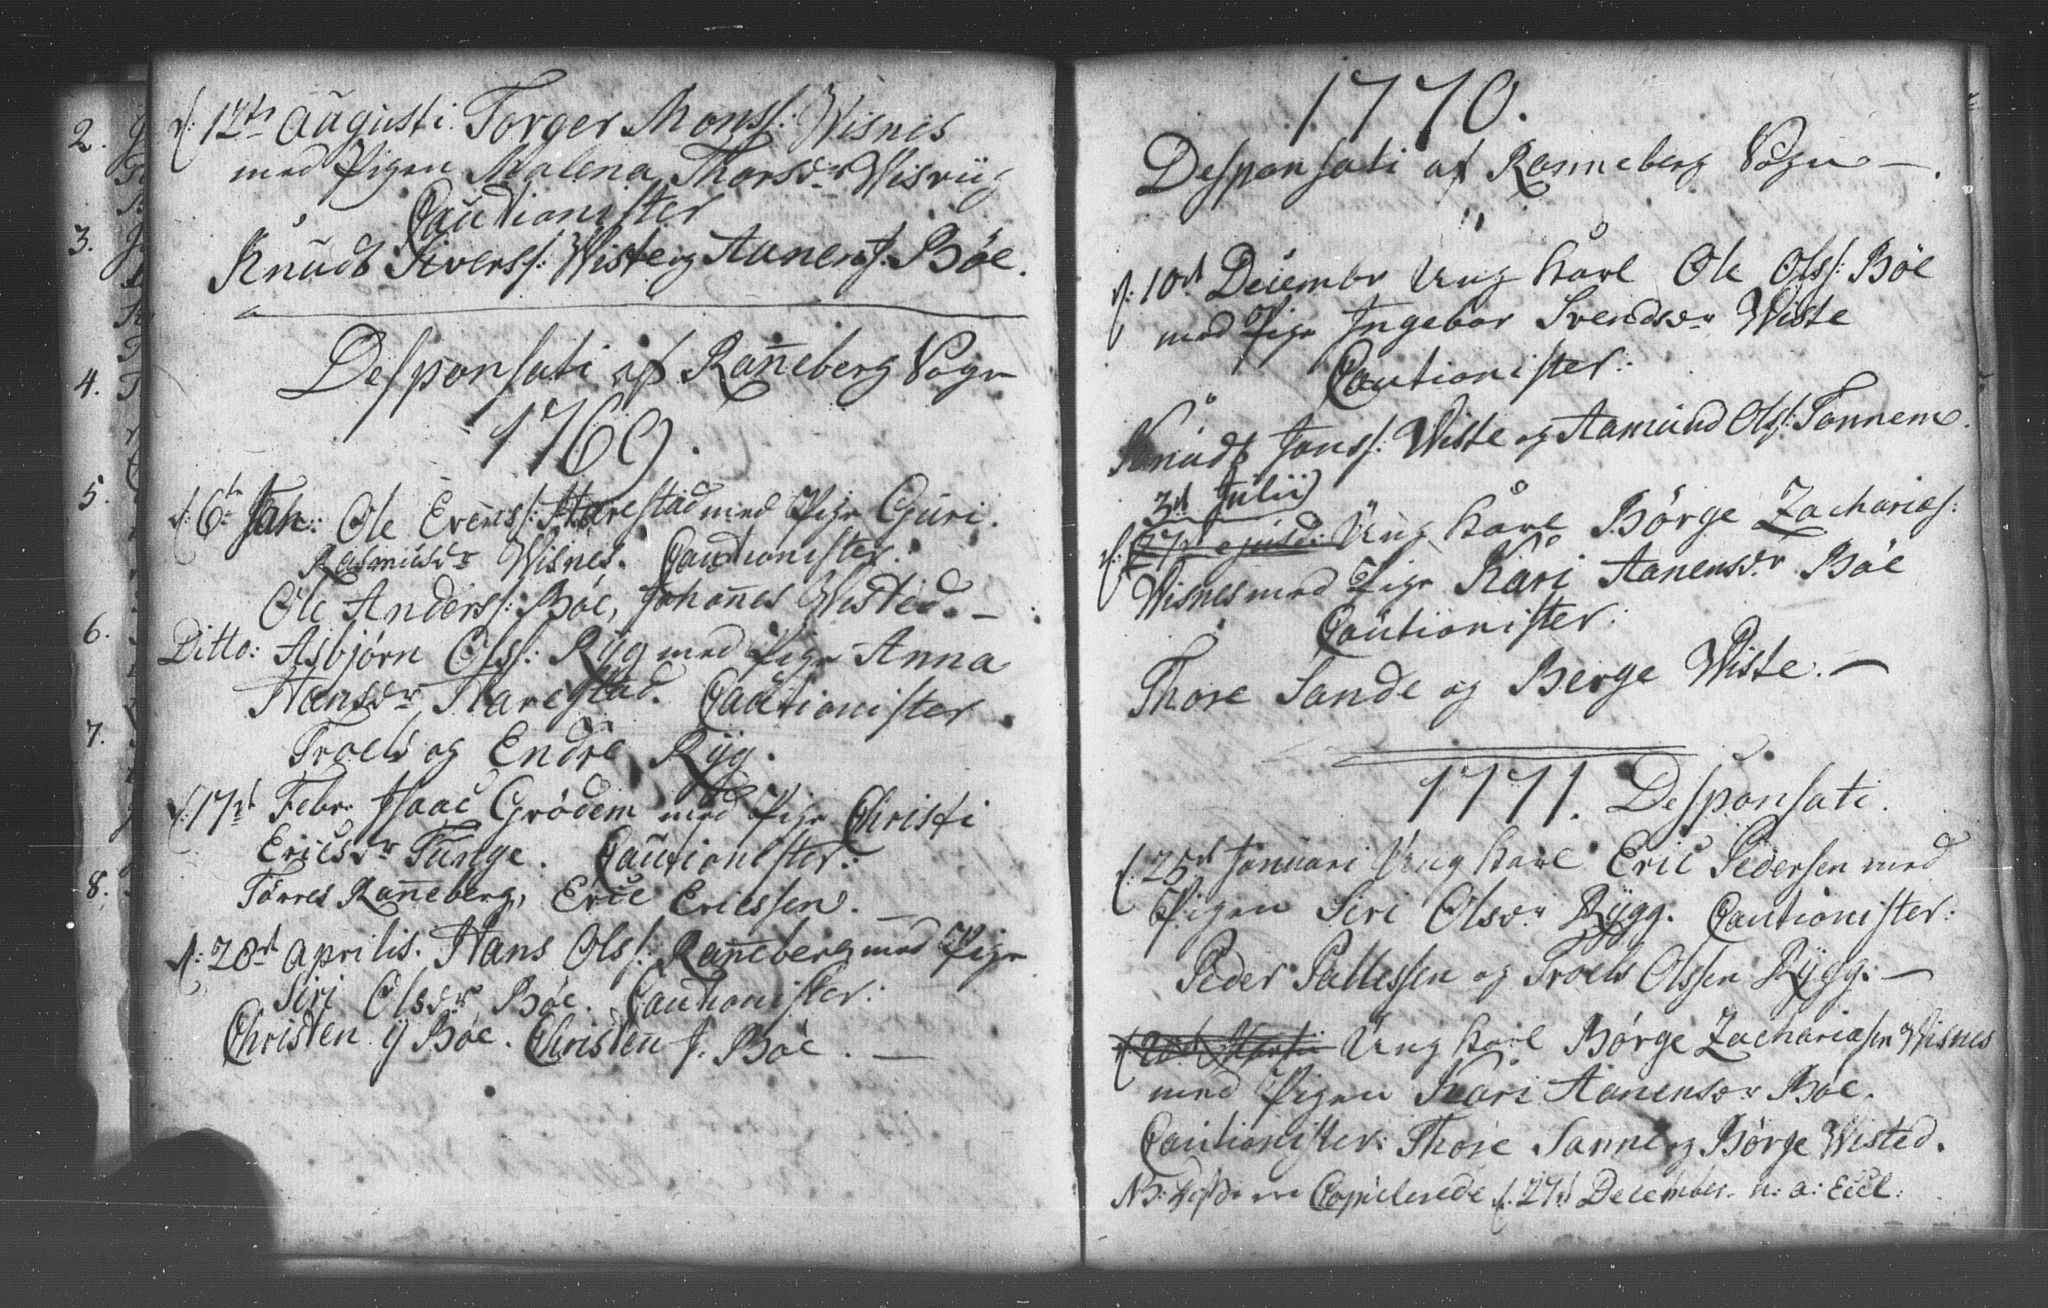 2.
3.
4.
5.
6.
7.
8.
d: 12te Augusti Torger Monss: Wisnes
med Pigen Malena Thorsdr Wisriig
Cautionister
Knudt Siverss: Wiste og Aanen J. Bøe.
Desponsati af Rañeberg Sogn
1769.
d: 6te Jan: Ole Evenss: Harestad med Pige Guri
Rasmusdr Wisnes. Cautionister:
Ole Anderss: Bøe, Johañes Wisted. —
Ditto: Asbjørn Olss: Ryg med Pige Anna
Hansdr Harestad. Cautionister
Troels og Endre Ryg.
d: 17de Febr. Isaac Grødem med Pige Christi
Ericsdr Tunge. Cautionister:
Tørres Rañeberg, Eric Ericssen. —
d: 28de Aprilis. Hans Olss: Rañeberg med Pige
Siri Olsdr Bøe. Cautionister:
Christen ij Bøe. Christen J. Bøe. —
1770.
Desponsati af Ranneberg Sogn —.
d: 10de Decembr Ung Karl Ole Olss: Bøe
med Pige Ingebor Svendsdr Wiste
Cautionister:
Knudt Jonss: Wiste og Aamund Olss: Tonnem.
3de Julii
d: Ung Karl Børge Zacharias:
Wisnes med Pige Kari Aanensdr Bøe
Cautionister:
Thore Sande og Berge Wiste. —
1771. Desponsati.
d: 25de Januari Ung Karl Eric Pedersen med
Pigen Siri Olsdr Rygg. Cautionister:
Peder Pallessen og Troels Olssen Rygg. —
d 20de Martii Ung Karl Børge Zachariasen Wisnes
med Pigen Kari Aanensdr Bøe.
Cautionister: Thore Sanne og Børge Wisted.
NB: Disse ere Copulerede d. 27de December. n: a: Eccl: